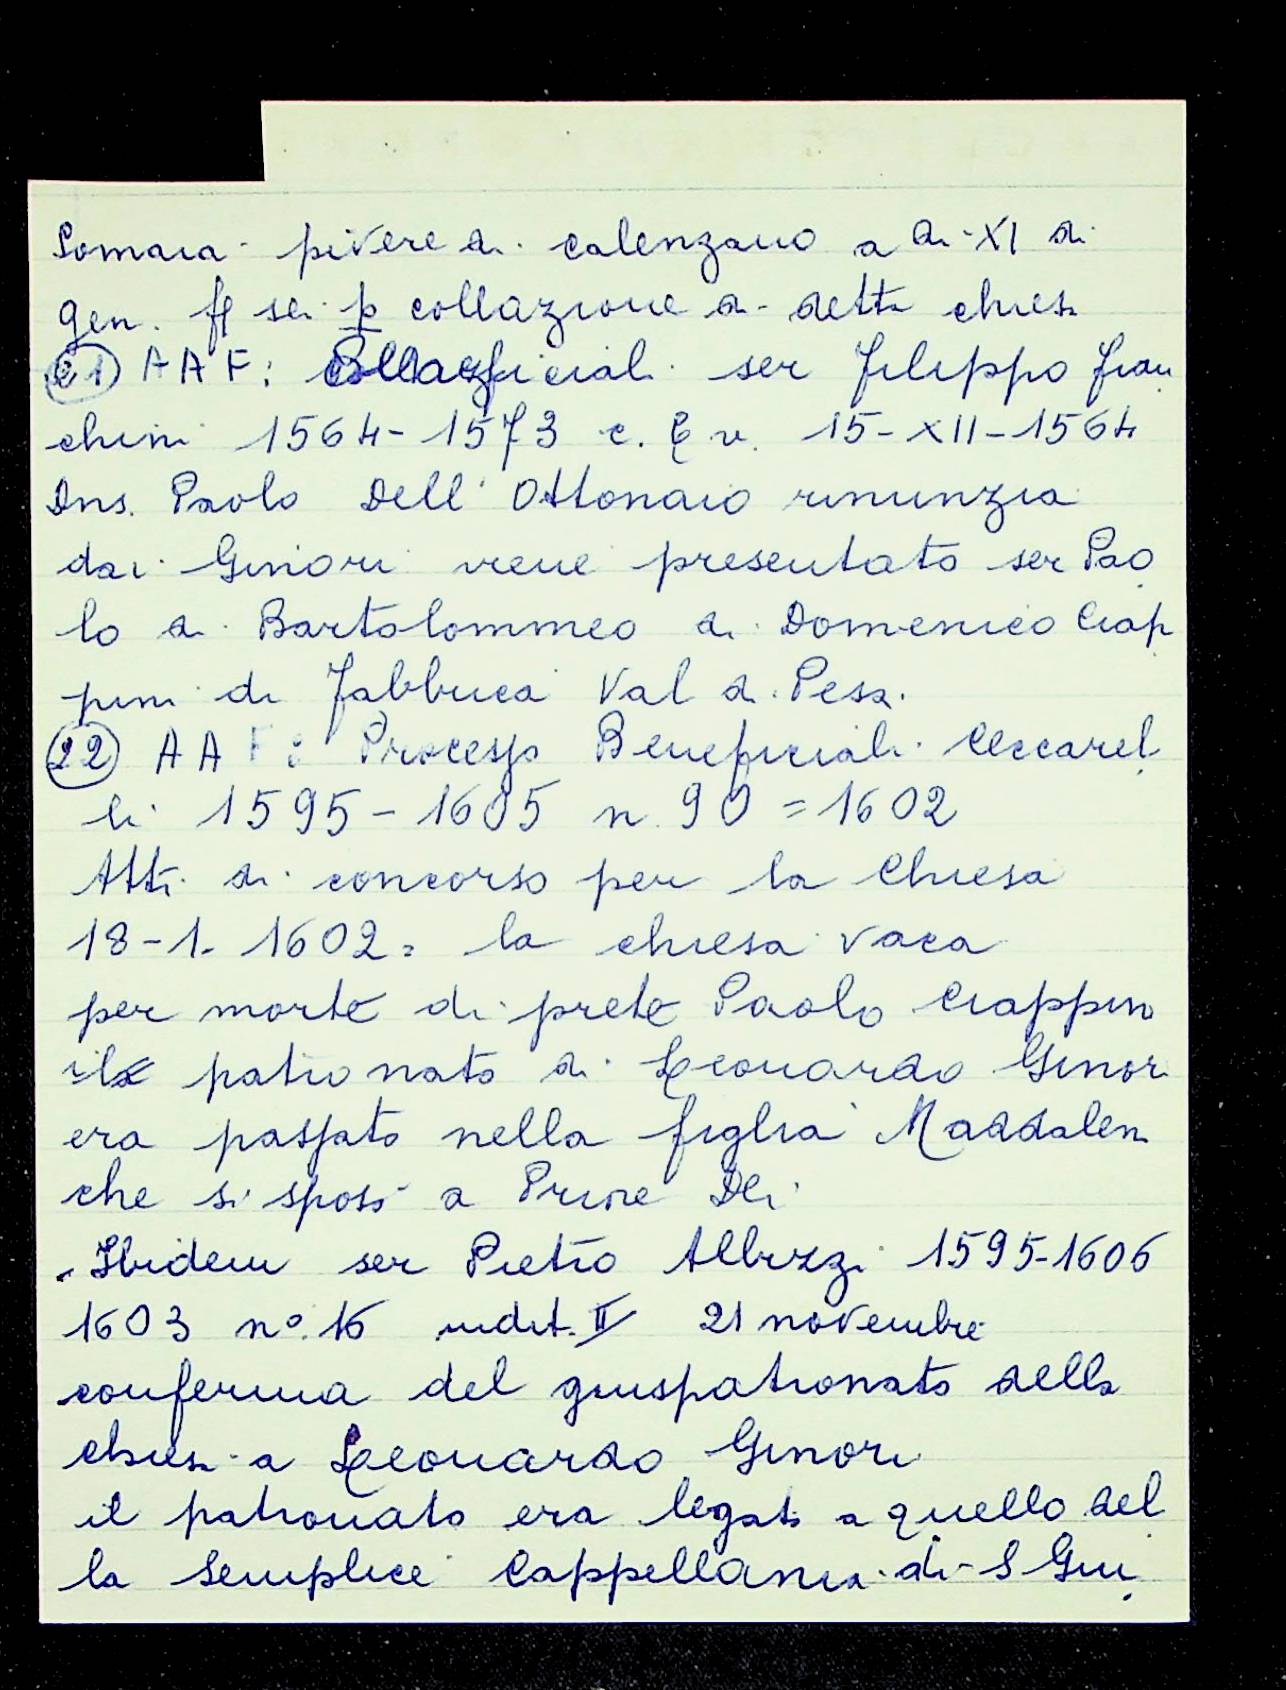 Somaia pivere di Calenzano a di XI di
gen. ff sei p collazione di detta chiesa
(21) AAF: ser Filippo Fran
chini 1564-1573 c. 15-XII-1564
Dns. Paolo Dell'Ottonaio rinunzia
dai Ginori viene presentato ser Pao
lo di Bartolommeo di Domenico Ciap
pini di Fabbrica Val di Pesa.
(22) AAF: Processo Beneficiali Ceccarel
li 1595-1605 n. 90 = 1602
Atti di concorso per la Chiesa
18-1-1602 = la chiesa vaca
per morte di prete Paolo Ciappin
il patronato di Leonardo Ginori
era passato nella figlia Maddalena
che si sposò a Prine Dei
Ibidem ser Pietro Albizzi 1595-1606
1603 n° 16 indit. II 21 novembre
conferma del giuspatronato della
chiesa a Leonardo Ginori
il patronato era legato a quello del
la semplice Cappellania di S Giu